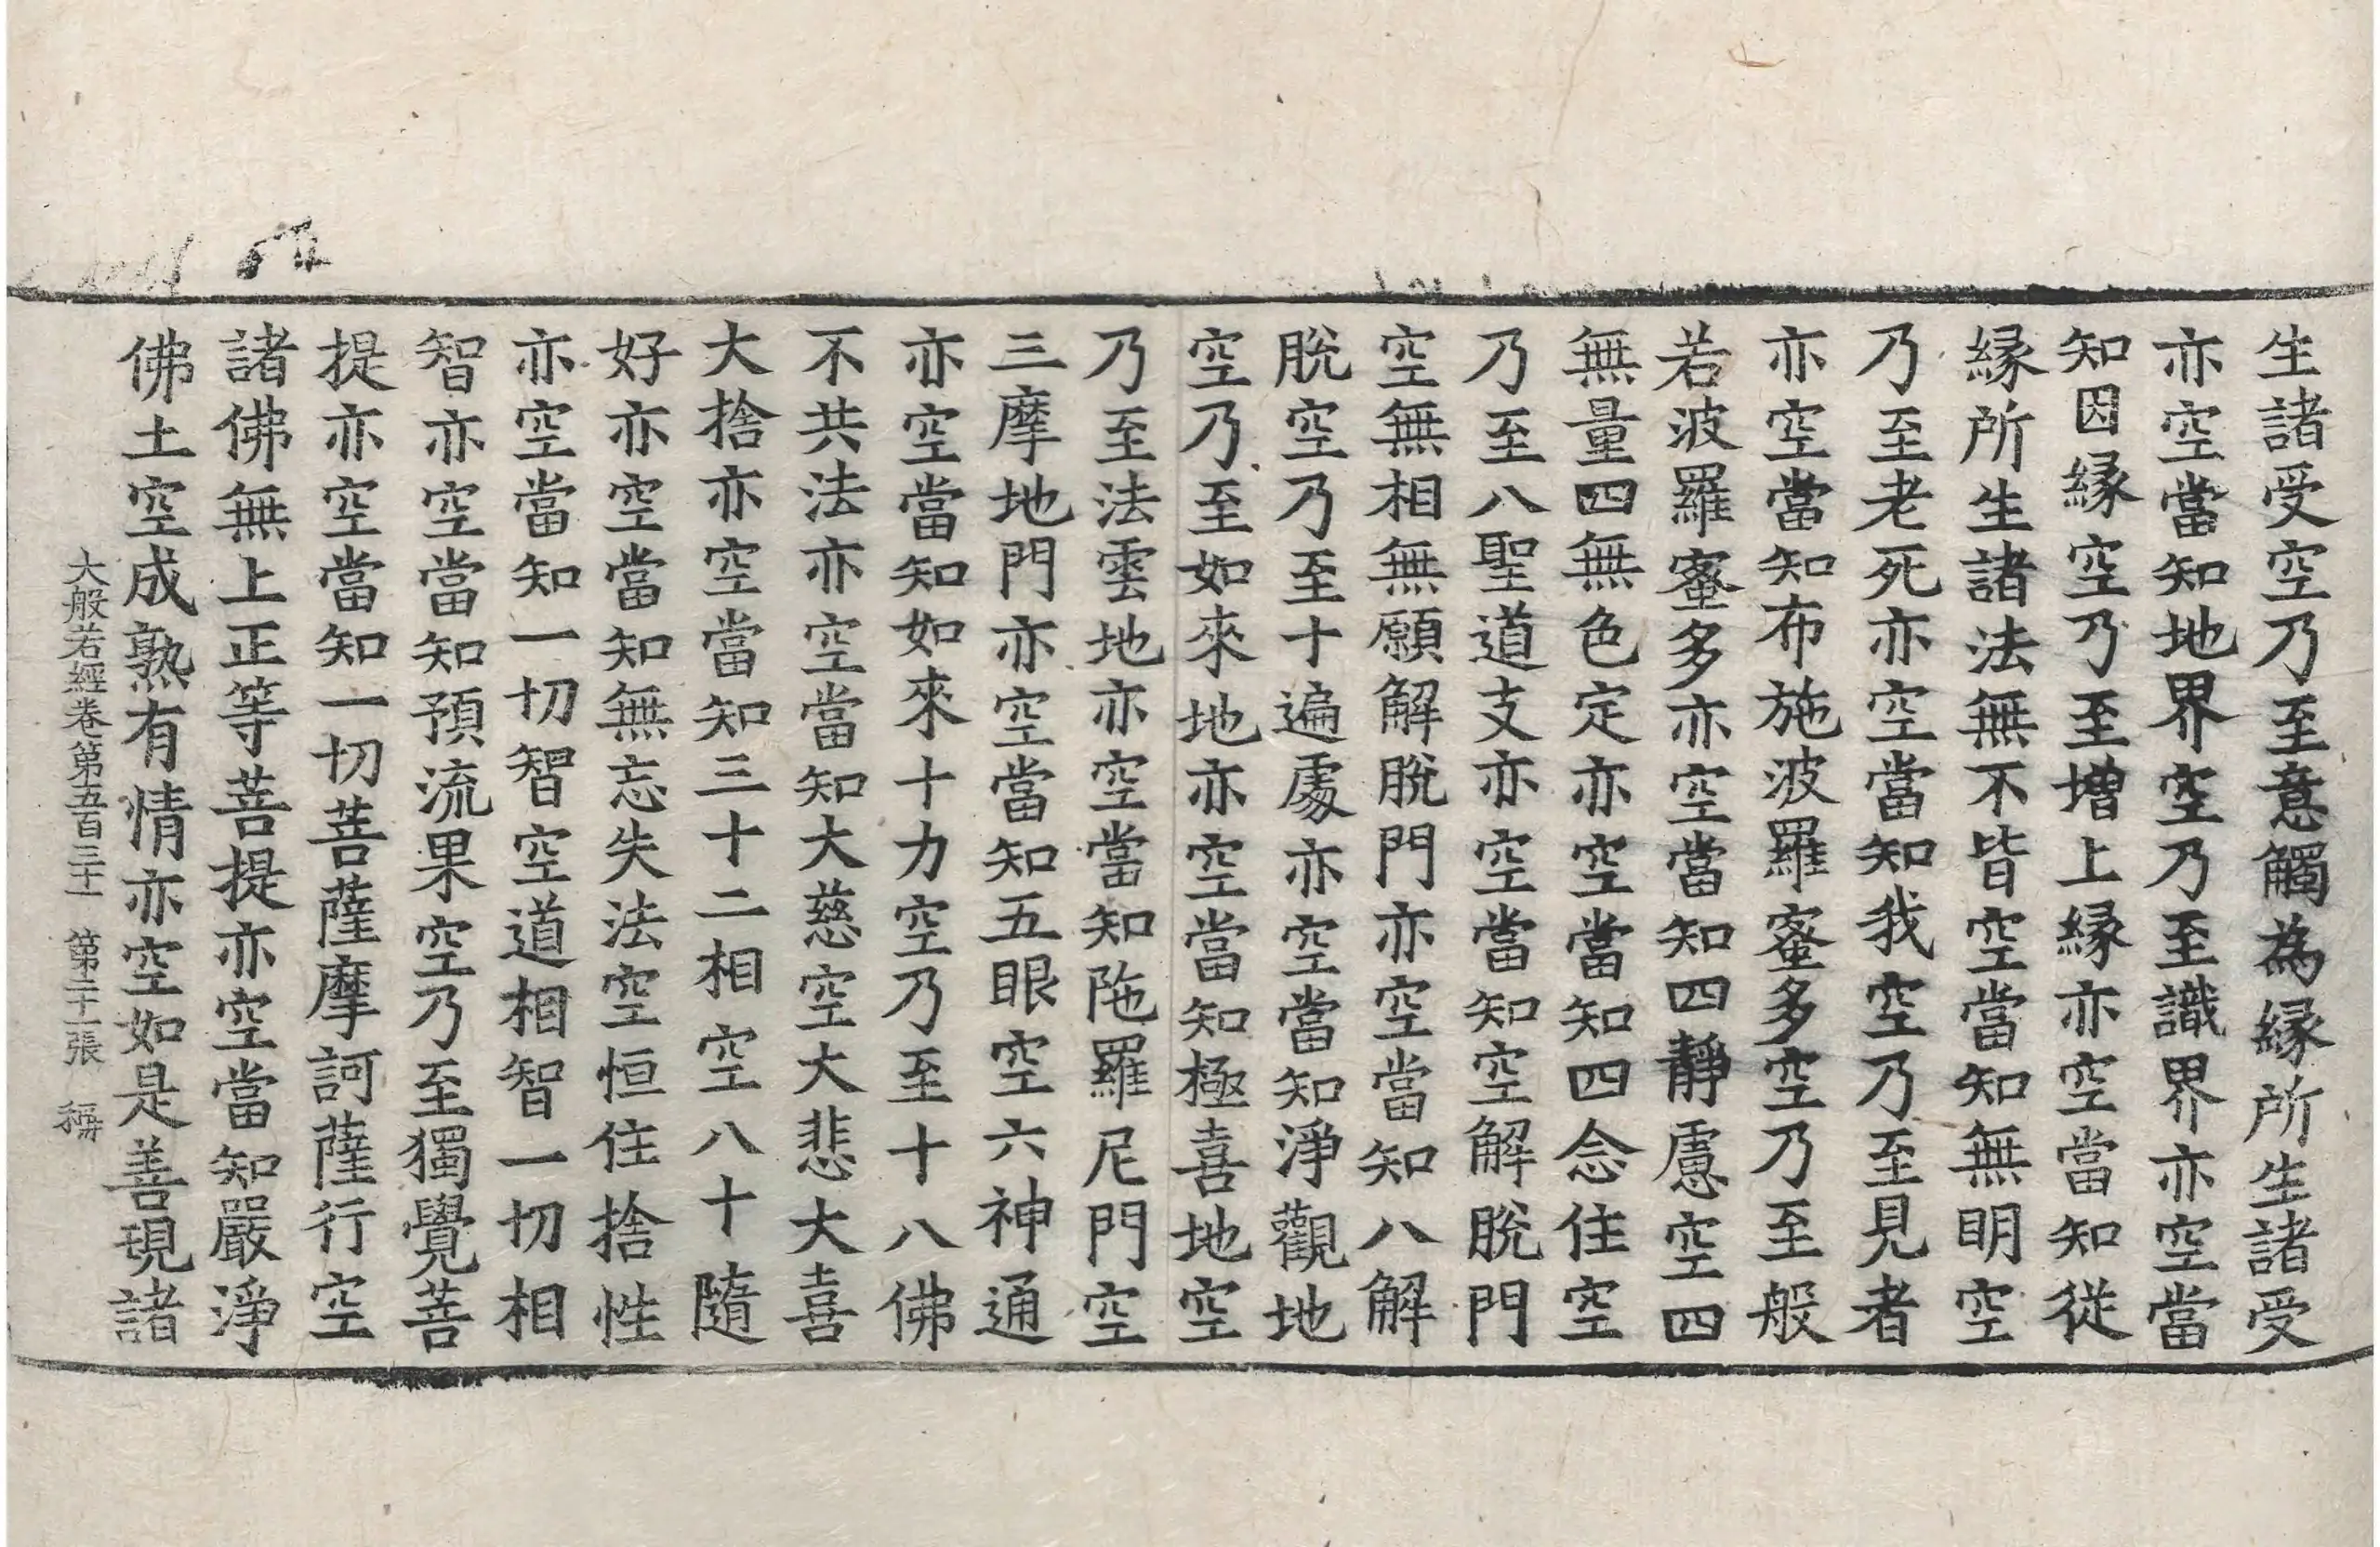 生諸受空乃至意觸為縁所生諸受
亦空當知地界空乃至識界亦空當
知因縁空乃至增上縁亦空當知從
縁所生諸法無不皆空當知無明空
乃至老死亦空當知我空乃至見者
亦空當知布施波羅蜜多空乃至般
若波羅蜜多亦空當知四靜慮空四
無量四無色定亦空當知四念住空
乃至八聖道支亦空當知空解脫門
空無相無願解脫門亦空當知八解
脫空乃至十遍處亦空當知淨觀地
空乃至如來地亦空當知極喜地空
乃至法雲地亦空當知陁羅尼門空
三摩地門亦空當知五眼空六神通
亦空當知如來十力空乃至十八佛
不共法亦空當知大慈空大悲大喜
大捨亦空當知三十二相空八十隨
好亦空當知無忘失法空恒住捨性
亦空當知一切智空道相智一切相
智亦空當知預流果空乃至獨覺菩
提亦空當知一切菩薩摩訶薩行空
諸佛無上正等菩提亦空當知嚴淨
佛土空成熟有情亦空如是善現諸
大般若經卷第五百三十一 第二十一張 稱